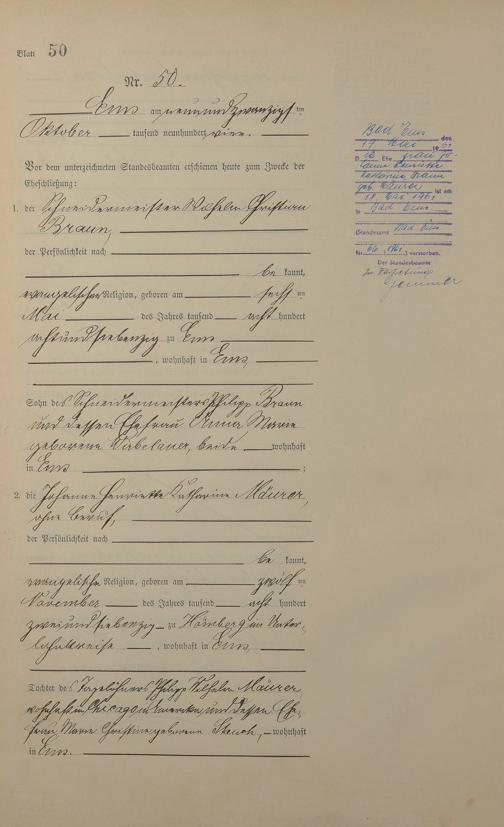 Blatt 50
Nr. 50.
Ems am neunundzwanzigsten
Oktober tausend neunhundert vier.
Vor dem unterzeichneten Standesbeamten erschienen heute zum Zwecke der
Eheschließung:
1. der Schneidermeister Wilhelm Christian
Braun,
der Persönlichkeit nach
be kannt,
evangelischer Religion, geboren am sechsten
Mai des Jahres tausend acht hundert
achtundsiebenzig zu Ems
, wohnhaft in Ems,
Sohn des Schneidermeisters Philipp Braun
und dessen Ehefrau Anna Marie
geborene beide wohnhaft
in Ems ;
2. die Johanne Henriette Katharine Mäurer,
ohne Beruf,
der Persönlichkeit nach
be kannt,
evangelischer Religion, geboren am zwölften
November des Jahres tausend acht hundert
zweiundsiebenzig zu Hömberg im Unter-
lahnkreise , wohnhaft in Ems,
Tochter des Tagelöhners Philipp Wilhelm Mäurer,
wohnhaft in Chicago in Amerika, und dessen Ehe-
frau Marie Christine geborene wohnhaft
in Ems.
Bad Ems, den
19 Mai 1961
Die Ehefrau
Henriette
Katharina Braun
geb. Mäurer ist am
18 Mai 1961
in Bad Ems
(Standesamt Bad Ems
Nr. 66 /1961) verstorben.
Der Standesbeamte
In Vertretung